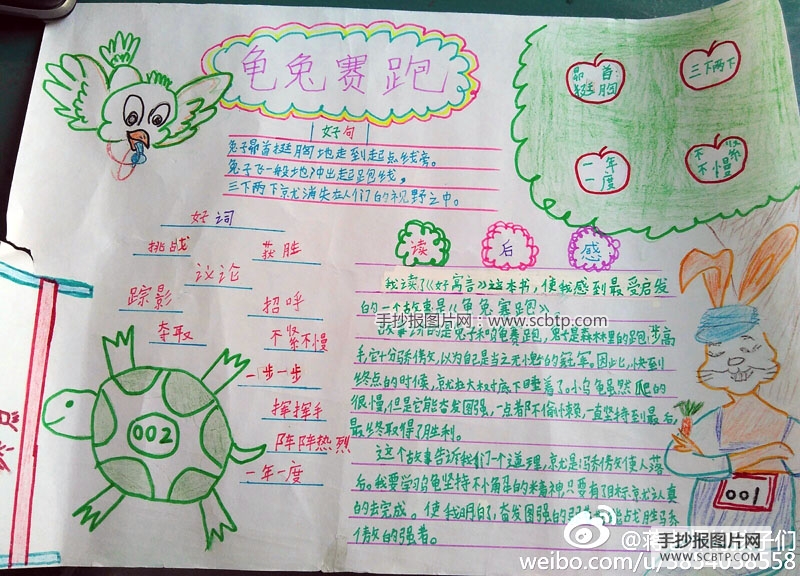 龟兔赛跑
昂首
挺胸
三下两下
一年
一度
不紧
不慢
好句
兔子昂首挺胸地走到起点线旁。
兔子飞一般地冲出起跑线。
三下两下就消失在人们的视野之中。
好词
挑战
获胜
议论
踪影
招呼
夺取
不紧不慢
一步一步
挥挥手
阵阵热烈
一年一度
002
读后感
我读了《好寓言》这本书，使我感到最受启发
的一个故事是《龟兔赛跑》
手抄报图片网：www.scbtp.com
故事讲的是兔子和乌龟赛跑，兔子是森林里的跑步高
手，它十分骄傲，以为自己是当之无愧的冠军。因此，快到
终点的时候，就在大树底下睡着了。小乌龟虽然爬的
很慢，但是它能奋发图强，一点都不偷懒，一直坚持到最后，
最终取得了胜利。
这个故事告诉我们一个道理，就是骄傲使人落
后。我要学习乌龟坚持不
的精神，只要有了目标就认真
的去完成。使我明白了，奋发图强的弱者
能战胜骄
傲的强者。
001
手抄报图片网
WWW.SCBTP.COM
子们
weibo.com/u/3834038558